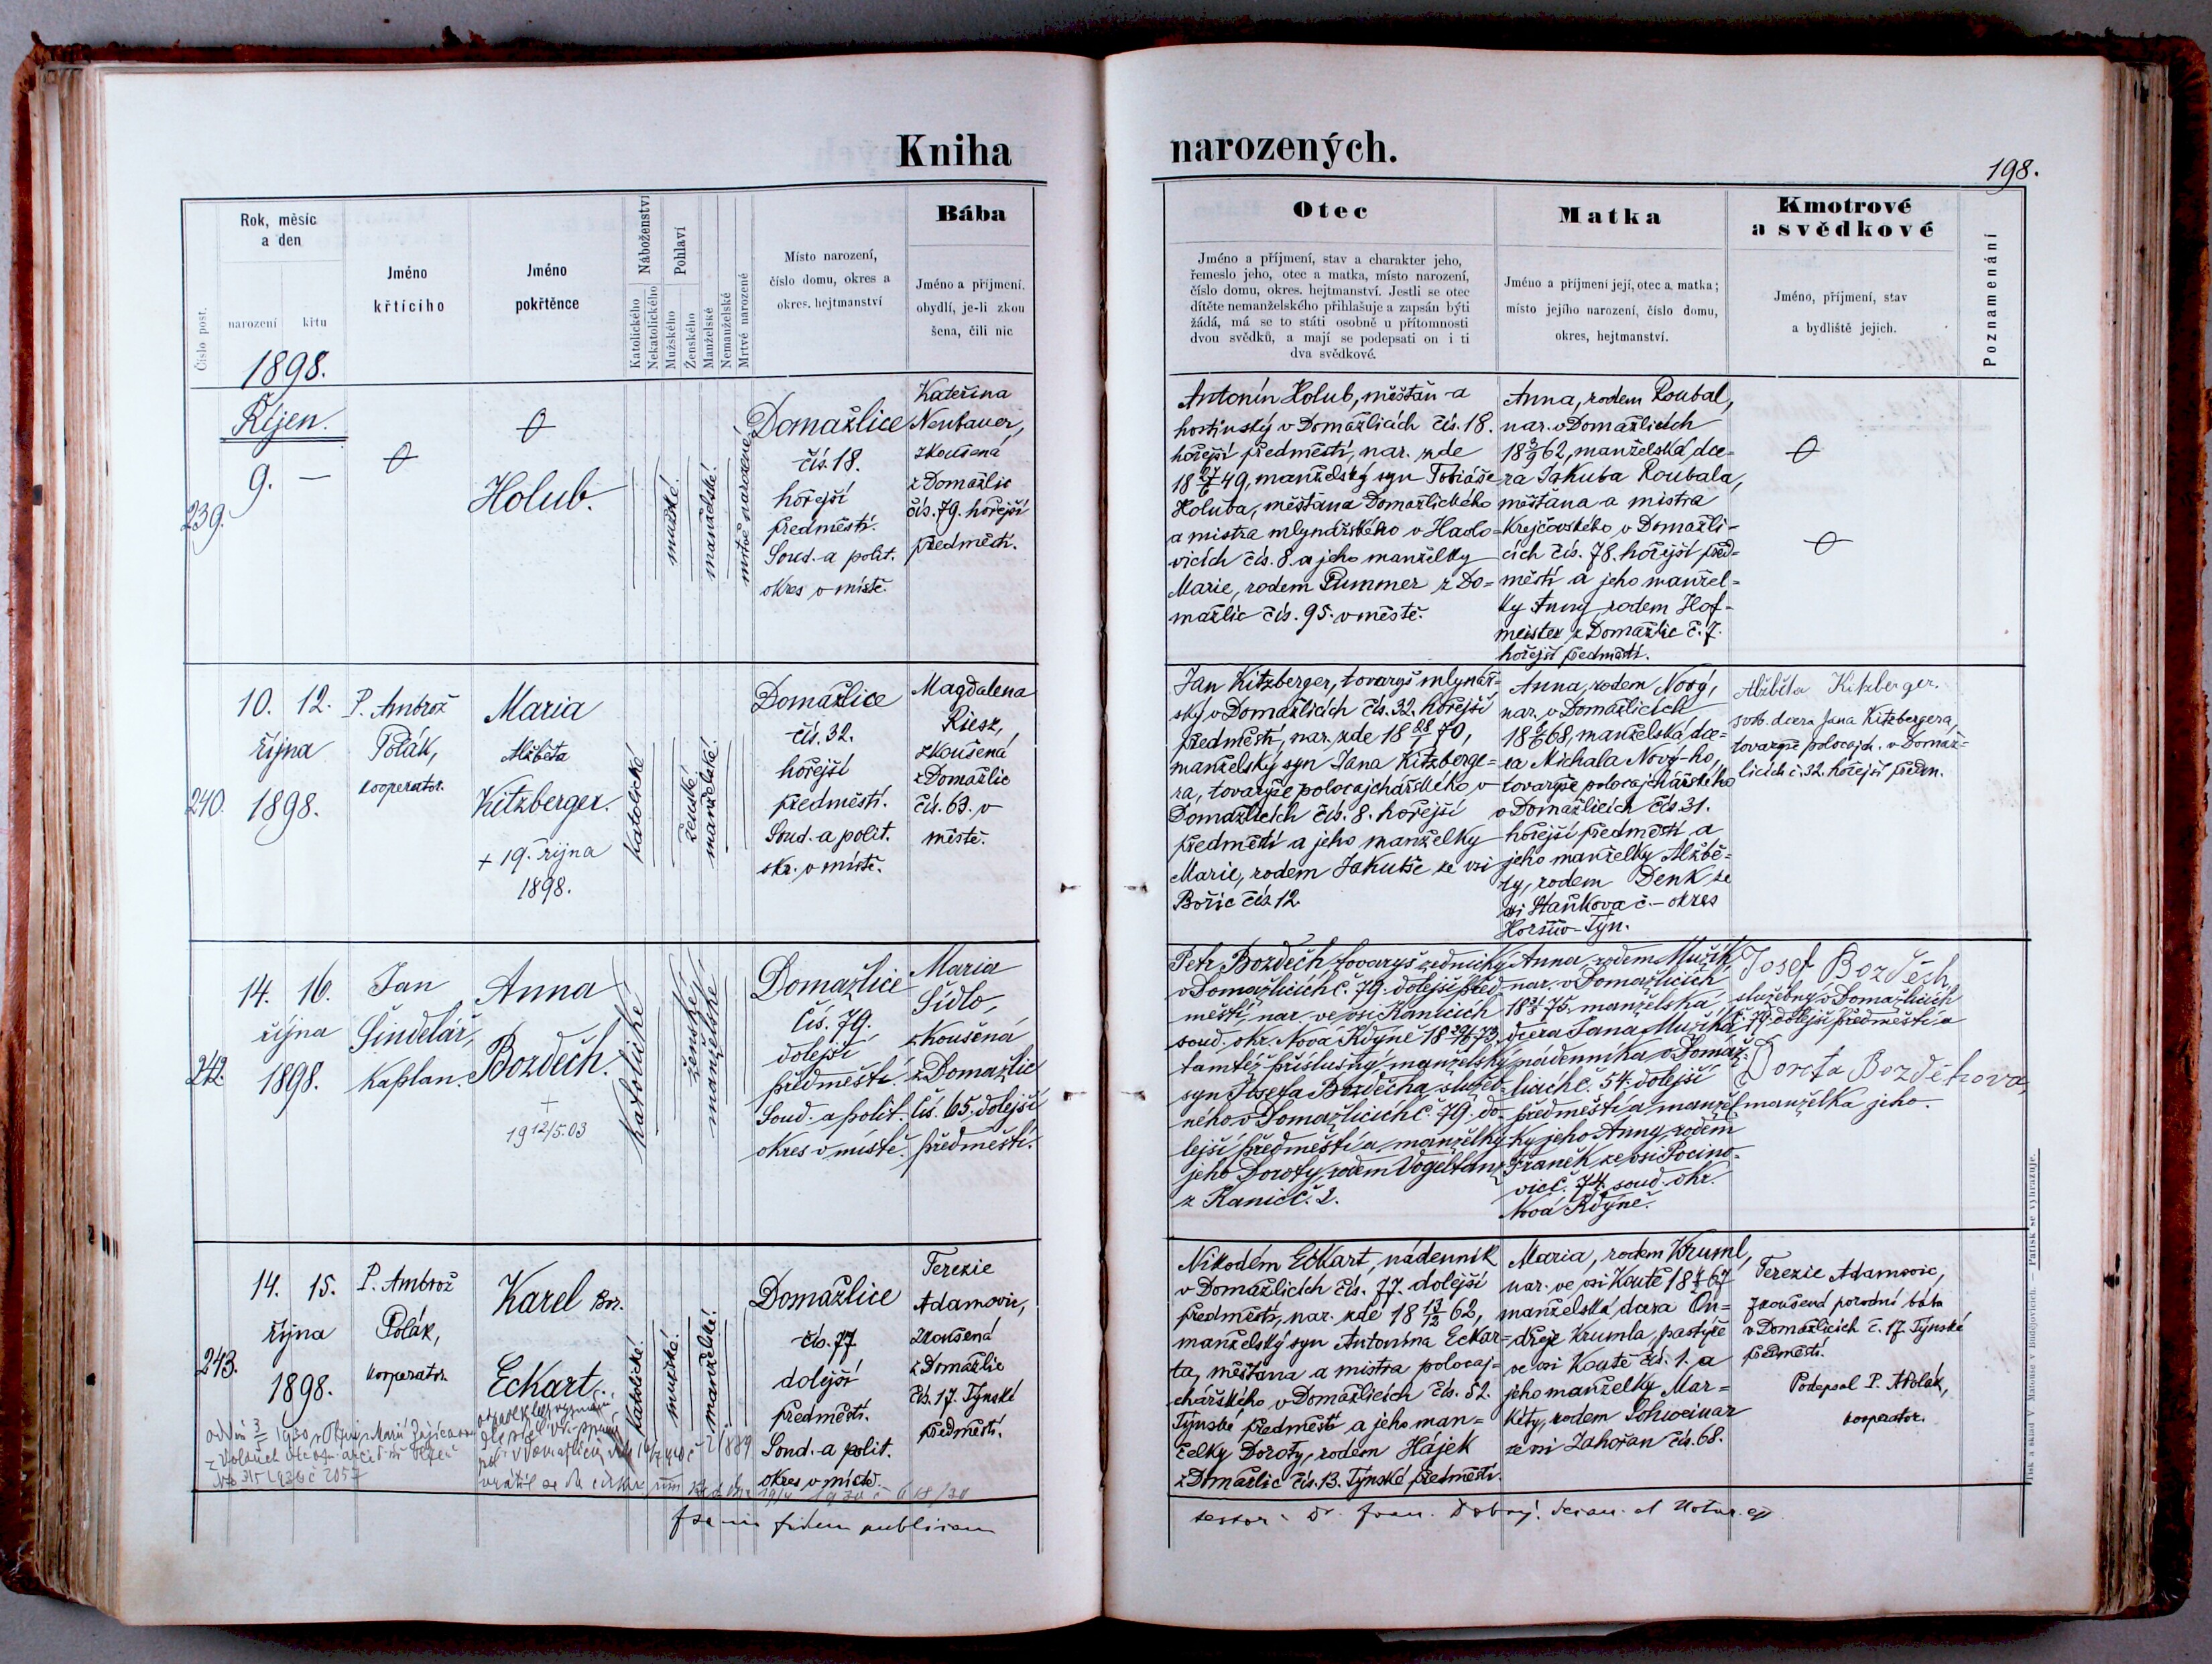 Kniha
narozených.
198.
Číslo post.
Rok, měsíc
a den
narození křtu
Jméno
křtícího
Jméno
pokřtěnce
Náboženství
Katolického
Nekatolického
Pohlaví
Mužského
Ženského
Manželské
Nemanželské
Mrtvě narozené
Místo narození,
číslo domu, okres a
okres. hejtmanství
Bába
Jméno a příjmení.
obydlí, je-li zkou
šena, čili nic
Otec
Jméno a příjmení, stav a charakter jeho,
řemeslo jeho, otec a matka, místo narození,
číslo domu, okres. hejtmanství. Jestli se otec
dítěte nemanželského přihlašuje a zapsán býti
žádá, má se to státi osobně u přítomnosti
dvou svědků, a mají se podepsati on i ti
dva svědkové.
Matka
Jméno a příjmení její, otec a matka;
místo jejího narození, číslo domu,
okres, hejtmanství.
Kmotrové
a svědkové
Jméno, příjmení, stav
a bydliště jejich.
Poznamenání
1898.
Říjen.
239.
9. —
Holub.
mužské.
manželské.
mrtvě narozené
Domažlice
čís. 18.
hořejší
předměstí.
Soud. a polit.
okres v místě.
Kateřina
Neubauer,
zkoušená
z Domažlic
čís. 79. hořejší
předměstí.
Antonín Holub, měšťan a
hostinský v Domažlicích čís. 18.
hořejší předměstí, nar. zde
18 27/6 49, manželský syn Tobiáše
Holuba, měšťana Domažlického
a mistra mlynářského v Havlo-
vicích čís. 8. a jeho manželky
Marie, rodem Pummer z Do-
mažlic čís. 95. v městě.
Anna, rodem Roubal,
nar. v Domažlicích
18 3/9 62, manželská dce-
ra Jakuba Roubala,
měšťana a mistra
krejčovského v Domažli-
cích čís. 78. hořejší před-
městí a jeho manžel-
ky Anny rodem Hof-
meister z Domažlic č. 7.
hořejší předměstí.
240.
10. 12.
října
1898.
P. Ambrož
Polák,
kooperator.
Maria
Alžběta
Kitzberger.
+ 19. října
1898.
katolické
ženské
manželské.
Domažlice
čís. 32.
hořejší
předměstí.
Soud. a polit.
okr. v místě.
Magdalena
Riesz,
zkoušená
z Domažlic
čís. 63. v
městě.
Jan Kitzberger, tovaryš mlynář-
ský v Domažlicích čís. 32. hořejší
předměstí, nar. zde 18 28/1 70,
manželský syn Jana Kitzberge-
ra, tovaryše polocajchářského v
Domažlicích čís. 8. hořejší
předměstí a jeho manželky
Marie, rodem Jakubše ze vsi
Bořic čís. 12.
Anna, rodem Nový,
nar. v Domažlicích
manželská dce-
ra Michala Nový-ho,
tovaryše polocajchářského
v Domažlicích čís. 31.
hořejší předměstí a
jeho manželky Alžbě-
ty, rodem Denk ze
vsi Staňkova č. – okres
Horšův-Týn.
Alžběta Kitzberger.
svob. dcera Jana Kitzbergera,
tovaryše polocajch. v Domaž-
licích č. 32. hořejší předm.
242.
14. 16.
října
1898.
Jan
Šindelář,
kaplan.
Anna
Bozděch.
+
19 12/5. 03
katolické
ženské
manželské
Domažlice
čís. 79.
dolejší
předměstí.
Soud. a polit.
okres v místě.
Maria
Šídlo,
zkoušená
z Domažlic
čís. 65. dolejší
předměstí.
Petr Bozděch, tovaryš zednický
v Domažlicích č. 79. dolejší před-
městí, nar. ve vsi Kanicích
soud. okr. Nová Kdýně
tamtéž příslušný, manželský
syn Josefa Bozděcha, služeb-
ného v Domažlicích č. 79. do-
lejší předměstí a manželky
jeho Doroty, rodem Vogeltanz
z Kanic č. 2.
Anna, rodem Mužík,
nar. v Domažlicích
manželská
dcera Jana Mužíka
nádenníka v Domaž-
licích č. 54. dolejší
předměstí a manžel-
ky jeho Anny, rodem
Franěk ze vsi Pocino-
vic č. 74. soud. okr.
Nová Kdýně.
Josef Bozděch
služebný v Domažlicích
č. 79. dolejší předměstí a
Dorota Bozděchova,
manželka jeho.
243.
14. 15.
října
1898.
P. Ambrož
Polák,
kooperator.
Karel Bor.
Eckart.
katolické.
mužské.
manželské.
Domažlice
čís. 77
dolejší
předměstí.
Soud. a polit.
okres v místě.
Terezie
Adamovic,
zkoušená
z Domažlic
čís. 17. Týnské
předměstí.
Nikodém Eckart, nádenník
v Domažlicích čís. 77. dolejší
předměstí, nar. zde 18 13/12 62,
manželský syn Antonína Eckar-
ta, měšťana a mistra polocaj-
chářského v Domažlicích čís. 52.
Týnské předměstí a jeho man-
želky Doroty, rodem Hájek
z Domažlic čís. 13. Týnské předměstí.
Maria, rodem Kruml,
nar. ve vsi Koutě
manželská dcera On-
dřeje Krumla, pastýře
ve vsi Koutě čís. 1. a
jeho manželky Mar-
kéty, rodem Schweinar
ze vsi Zahořan čís. 68.
Terezie Adamovic,
zkoušená porodní bába
v Domažlicích č. 17. Týnské
předměstí.
Podepsal P. A. Polák,
kooperator.
fidem publicam
Tisk a sklad A. Matouše v Budějovicích. — Patisk se vyhrazuje.